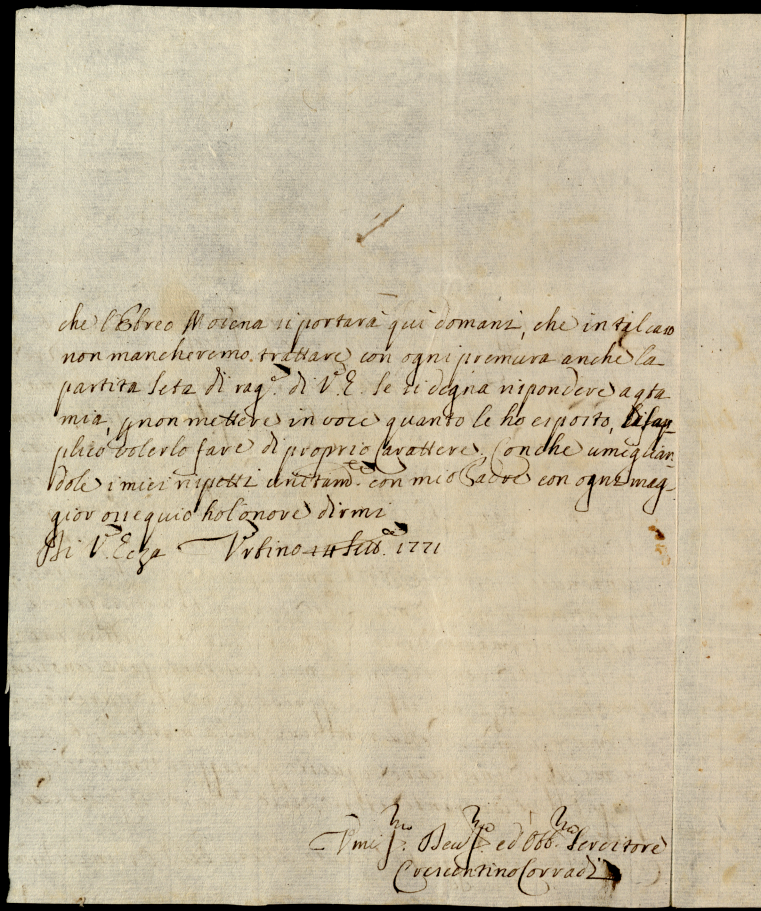 che l'Ebreo Morena si portarà qui domani, che in tal caso
non mancheremo trattare con ogni premura anche la
partita Seta di rag.e di V.E. Se si degna rispondere a qta
mia, p non mettere in voce quanto le ho esposto, la sup-
plico volerlo fare di proprio Carattere. Con che umiguian-
dole i miei rispetti unitam.te con mio Padre con ogni mag-
gior ossequio hò l'onore dirmi
Di V. Ecza Urbino 14 Setb.e 1771
Umi.mo Dev.mo ed Obb.mo Servitore
Crescentino Corradi